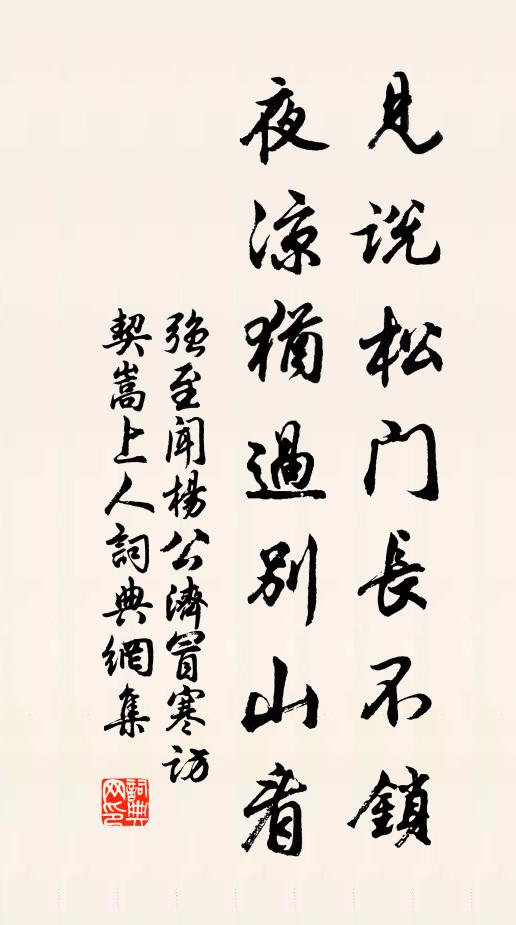 見説松门長不鎖
夜涼猶過别山看
強至闻楊公濟冒寒访
契嵩上人詞典網集
詞典网印